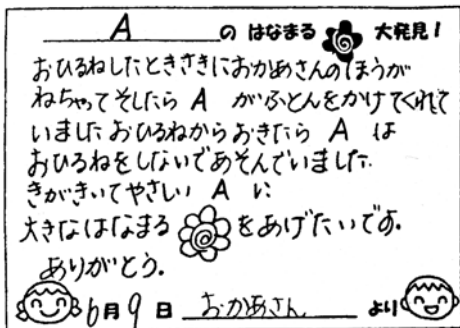 Aの はなまる 大発見!
おひるねしたときさきにおかあさんのほうが
ねちゃってそしたら A がふとんをかけてくれて
いました おひるねからおきたら A は
おひるねをしないであそんでいました.
きがきいてやさしい A に
大きなはなまる をあげたいです.
ありがとう.
6月9日 おかあさん より